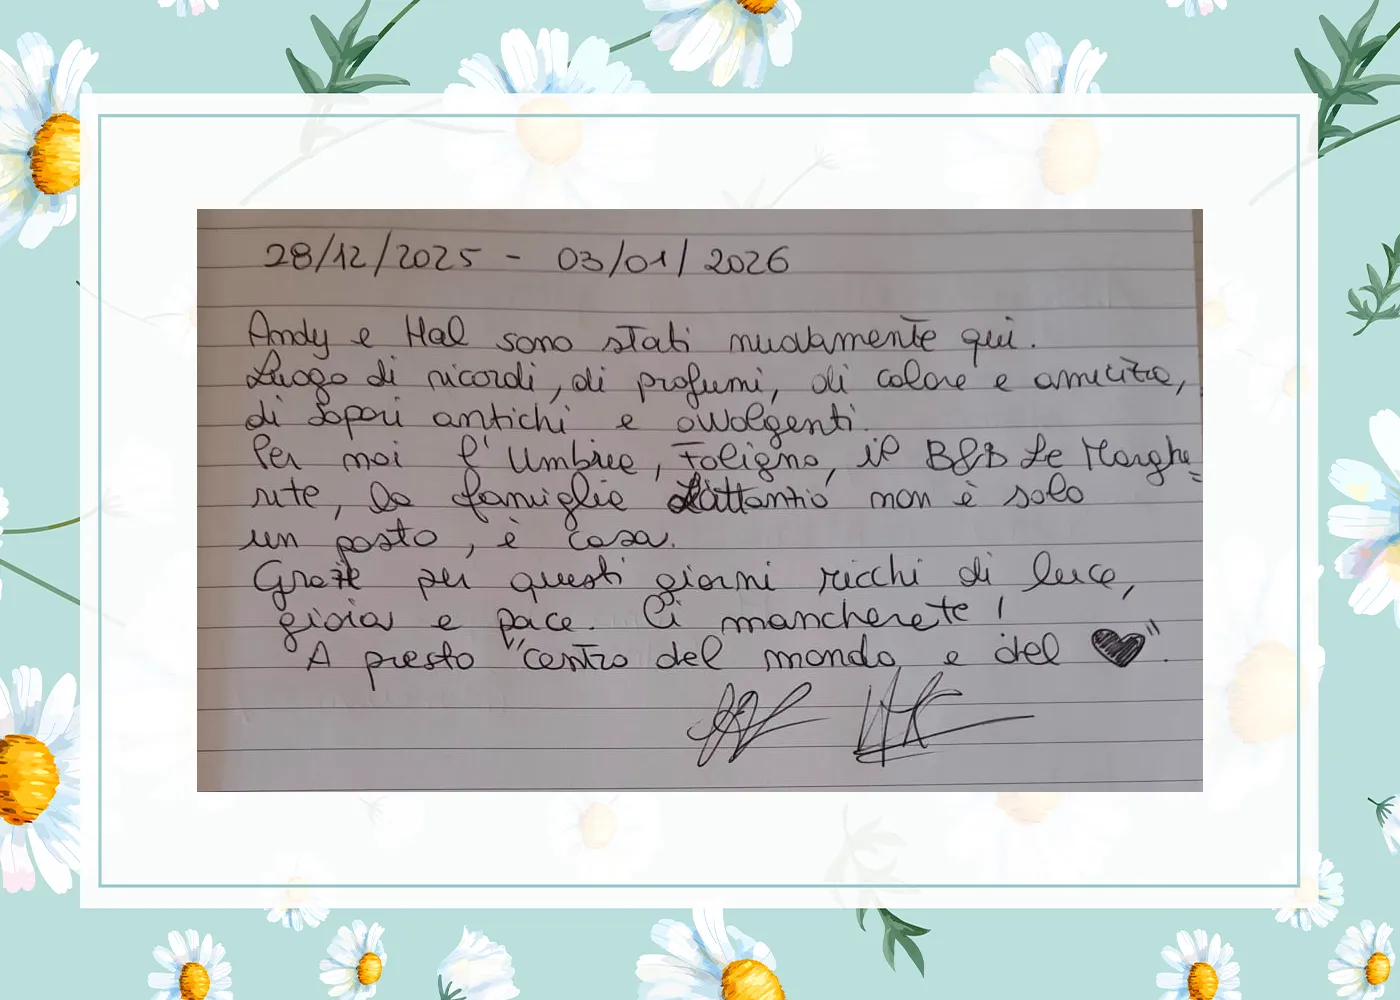 28/12/2025 - 03/01/2026
Andy e Hal sono stati nuovamente qui.
Luogo di ricordi, di profumi, di calore e amicizia,
di sapori antichi e avvolgenti.
Per noi l'Umbria, Foligno, il B&B Le Marghe=
rite, la famiglia Lattanzio non è solo
un posto, è casa.
Grazie per questi giorni ricchi di luce,
gioia e pace. Ci mancherete!
A presto "centro del mondo e del ♥".